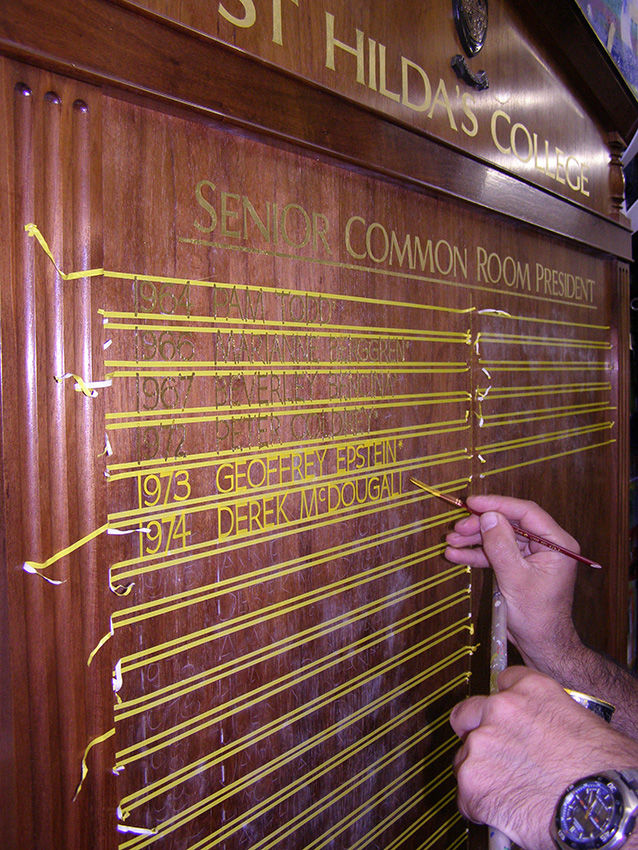 ST HILDA'S COLLEGE
SENIOR COMMON ROOM PRESIDENT
1964 PAM TODD*
1965 MARIANNE BERGGREN*
1967 BEVERLEY
1972 PETER
1973 GEOFFREY EPSTEIN*
1974 DEREK McDOUGALL